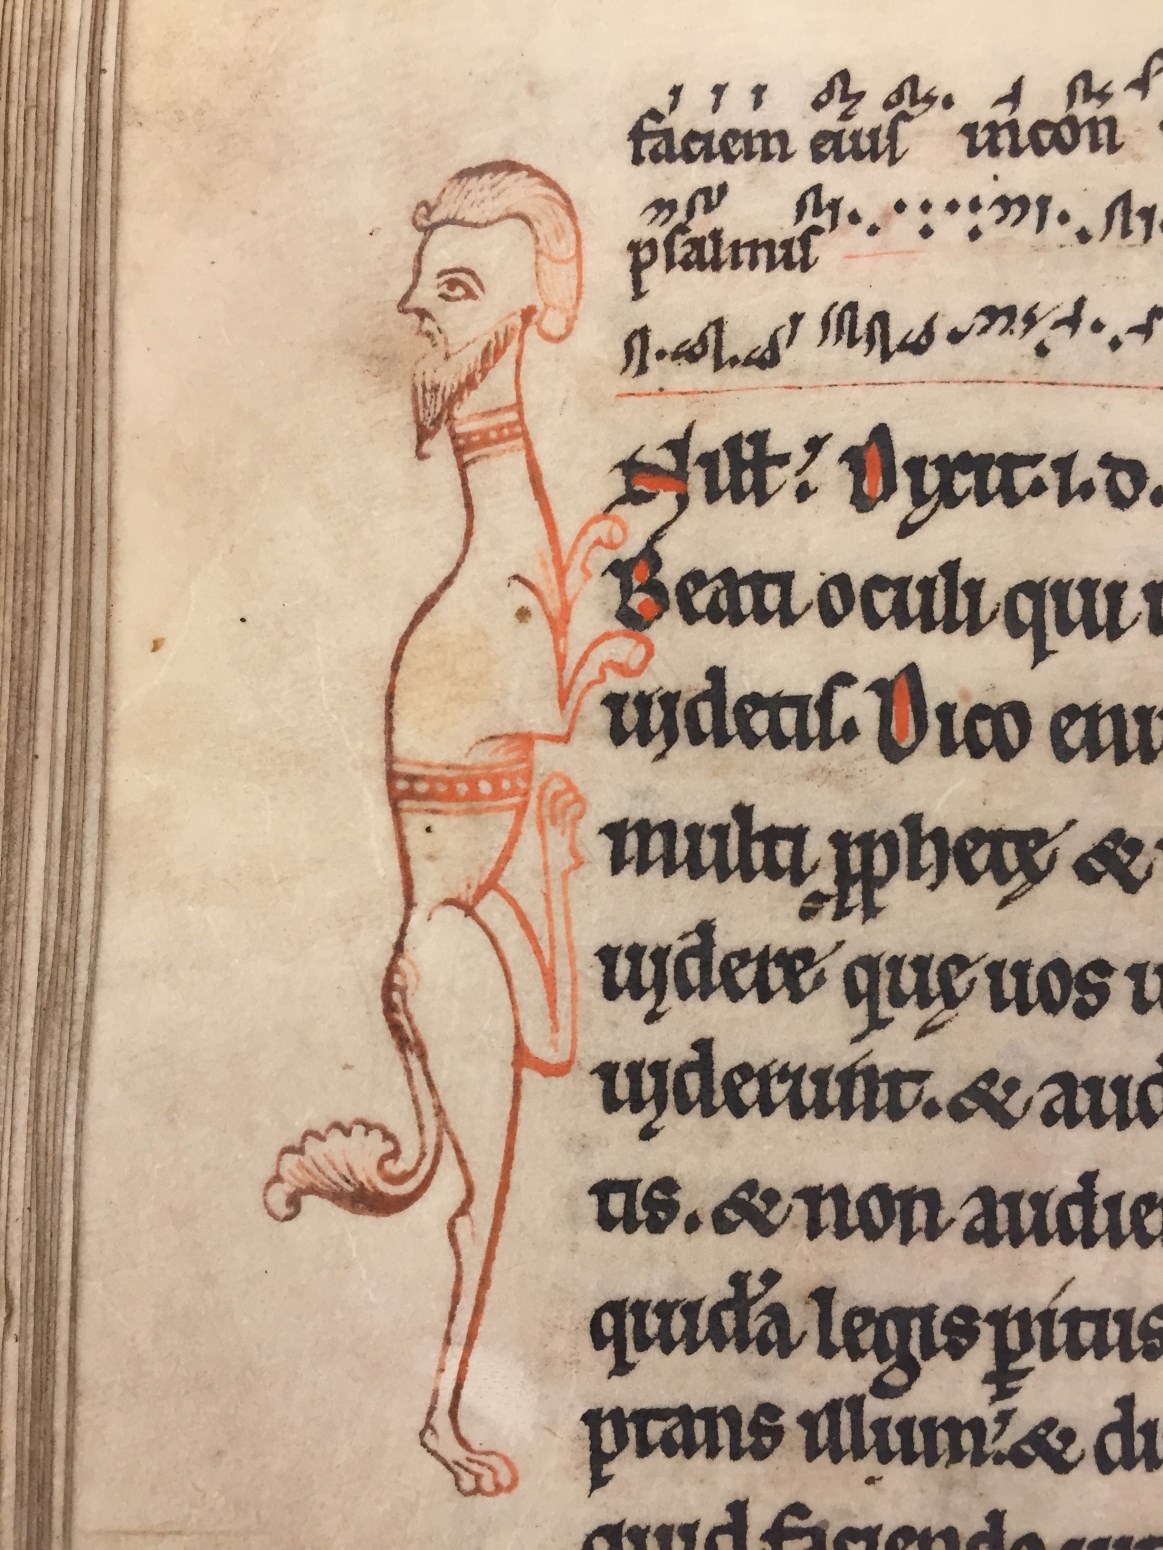 faciem eiuſ in con
pſalmiſ
Dixit. i. d.
Beati oculi qui
uidetiſ. Dico eni
multi pphetę &
uidere quę uos u
uiderunt. & aud
tis. & non audie
legis pitus
ptans illum. & di
quid faciendo